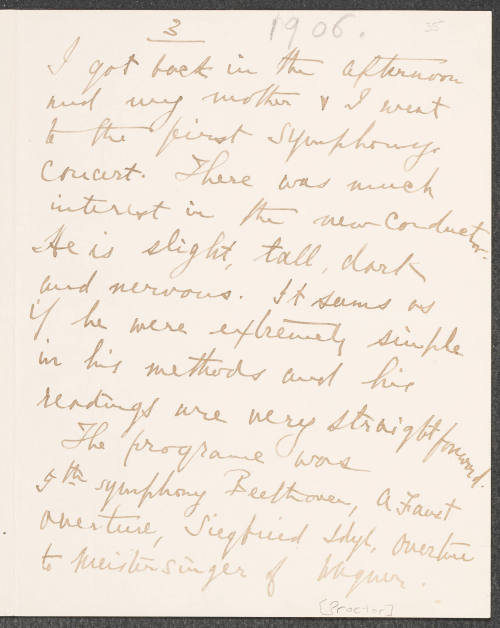 3
1906.
35
I got back in the afternoon
and my mother & I went
to the first Symphony
Concert. There was much
interest in the new conductor.
He is slight, tall, dark
and nervous. It seems as
if he were extremely simple
in his methods and his
readings are very straightforward.
The programe was
5th symphony Beethoven, A Faust
overture, Siegfried Idyl, overture
to Meistersinger of Wagner.
[Proctor]